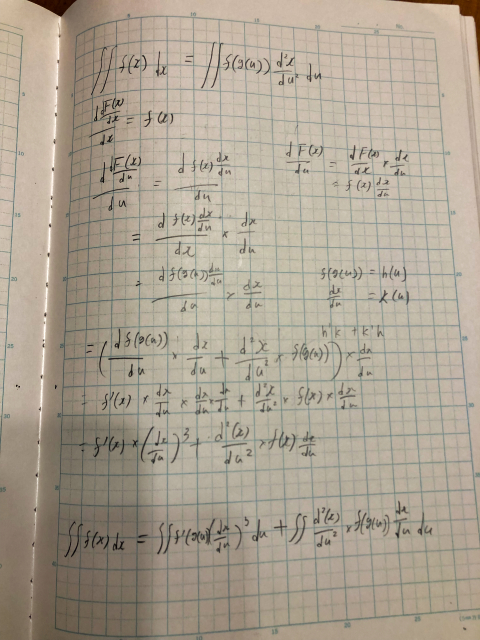 ∭ f(x) dx = ∬ f(g(u)) d²x/du² du
d dF(x)/dx / dx = f(x)
d dF(x)/du / du = d f(x) dx/du / du
dF(x)/du = dF(x)/dx × dx/du
= f(x) dx/du
= d f(x) dx/du / dx × dx/du
= d f(g(u)) du/du / du × dx/du
f(g(u)) = h(u)
dx/du = k(u)
h'k + k'h
= (d f(g(u))/du × dx/du + d²x/du² × f(g(u))) × dx/du
= f'(x) × dx/du × dx/du × dx/du + d²x/du² × f(x) × dx/du
= f'(x) × (dx/du)³ + d²(x)/du² × f(x) dx/du
∬ f(x) dx = ∬ f'(g(u)) (dx/du)³ du + ∬ d²(x)/du² × f(g(u)) dx/du du